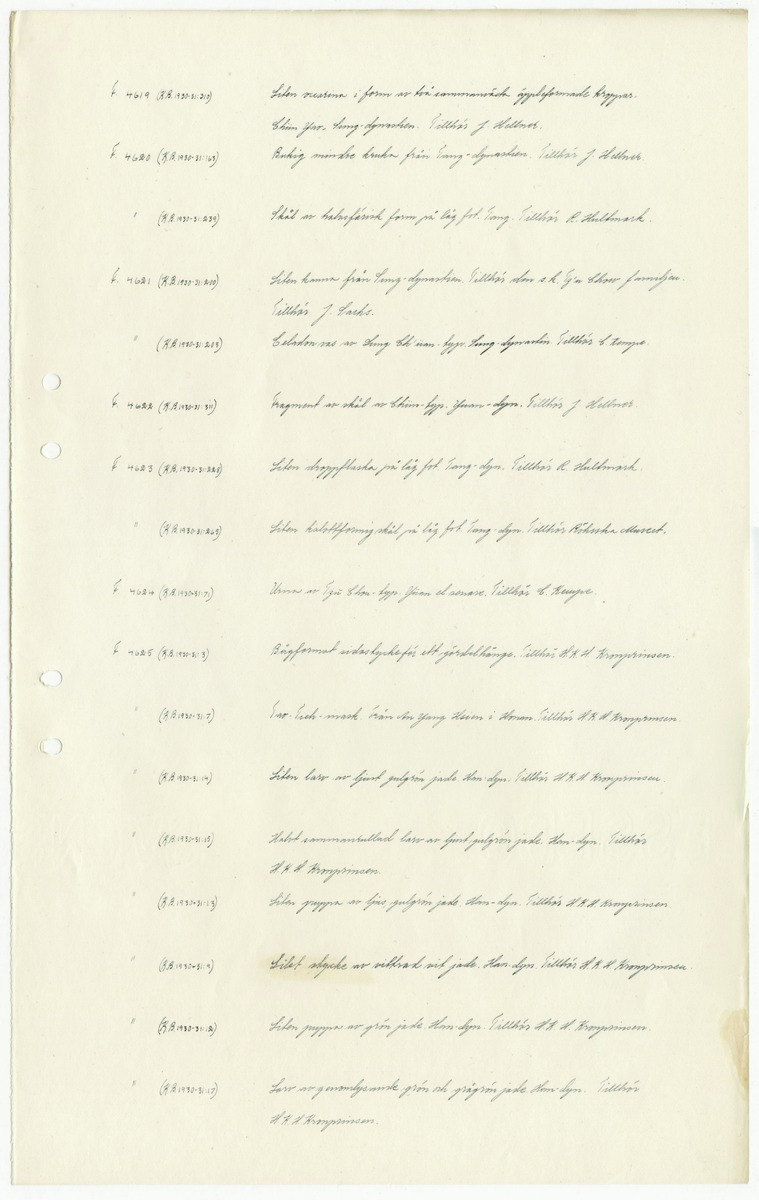 F. 4619 (K.B. 1930-31:210) Liten vas i form av två sammanväxta äppleformade kroppar.
Chün Yao. Sung-dynastien. Tillhör J. Hellner.
F. 4620 (K.B. 1930-31:163) Bukig mindre kruka från Tang-dynastien. Tillhör J. Hellner
" (K.B. 1930-31:239) Skål av halvsfärisk form på låg fot. Tang. Tillhör R. Hultmark.
F. 4621 (K.B. 1930-31:200) Liten kanna från Sung-dynastien. Tillhör den s.k. Tz'u Chou familjen.
Tillhör J. Sachs.
" (K.B. 1930-31:203) Celadon vas av Lung Ch'üan-typ. Sung-dynastin Tillhör C Kempe
F. 4622 (K.B. 1930-31:311) Fragment av skål av Chün-typ. Yuan-dyn. Tillhör J. Hellner.
F. 4623 (K.B. 1930-31:228) Liten droppflaska på låg fot. Tang-dyn. Tillhör R. Hultmark.
" (K.B. 1930-31:265) Liten halvttformig skål på låg fot. Tang-dyn. Tillhör Röhsska Museet.
F. 4624 (K.B. 1930-31:71) Urna av Tzu Chou-typ. Yuan el senare. Tillhör C. Kempe.
F 4625 (K.B. 1930-31:3) Bågformat sidostycke för ett gördelhänge. Tillhör H.K.H Kronprinsen.
" (K.B. 1930-31:7) Tao-Tieh-mask. Från An Yang Hsien i Honan. Tillhör H.K.H Kronprinsen.
" (K.B. 1930-31:14) Liten larv av ljust gulgrön jade. Han-dyn. Tillhör H.K.H Kronprinsen.
" (K.B. 1930-31:15) Halvt sammanrullad larv av ljust gulgrön jade. Han-dyn. Tillhör
H.K.H Kronprinsen.
" (K.B. 1930-31:13) Liten puppa av ljus gulgrön jade. Han-dyn. Tillhör H.K.H Kronprinsen.
" (K.B. 1930-31:9) Litet stycke av vittrad vit jade. Han-dyn. Tillhör H.K.H Kronprinsen.
" (K.B. 1930-31:12) Liten puppa av grön jade. Han-dyn. Tillhör H.K.H. Kronprinsen.
" (K.B. 1930-31:17) Larv av genomlysande grön och grågrön jade. Han-dyn. Tillhör
H.K.H Kronprinsen.